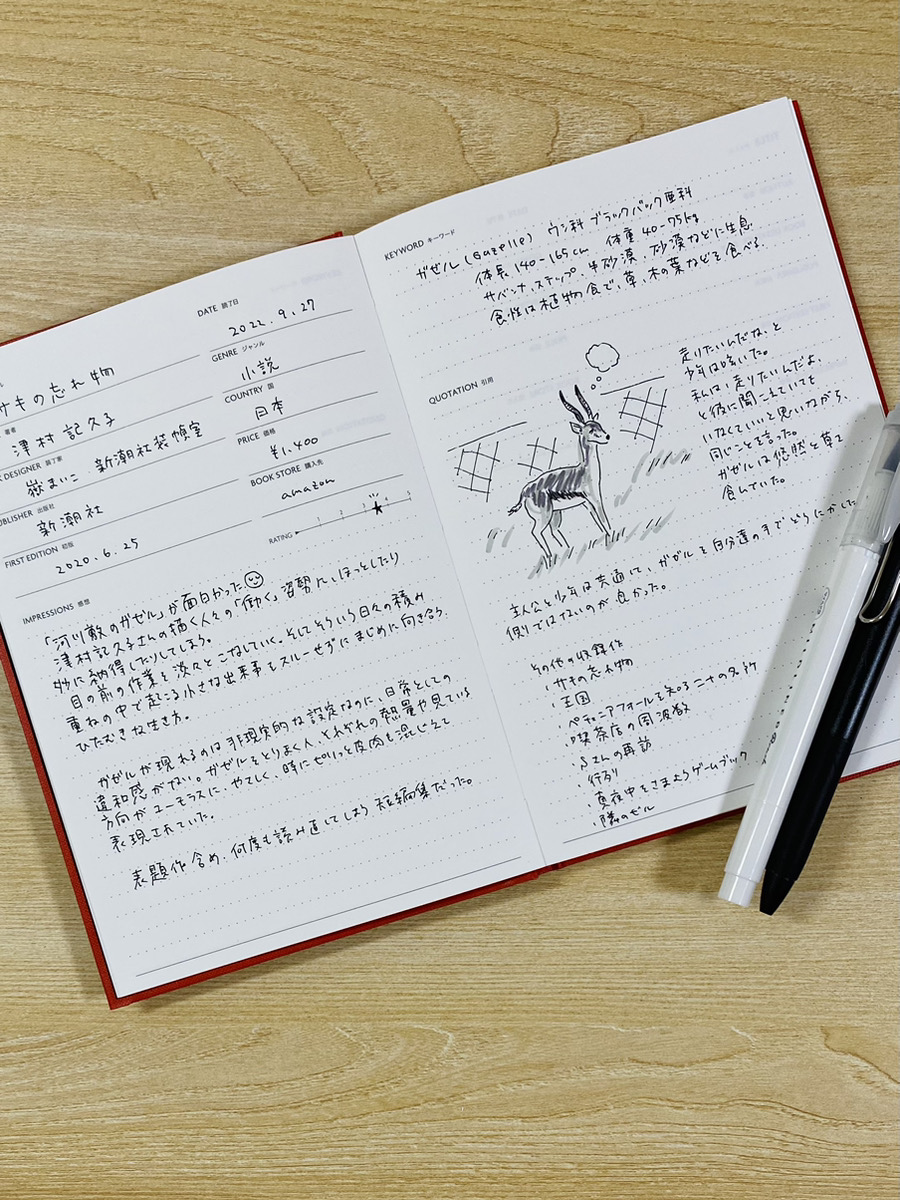 DATE 読了日
2022.9.27
サキの忘れ物
GENRE ジャンル
小説
著者
津村 記久子
COUNTRY 国
日本
DESIGNER 装丁家
嶽まいこ 新潮社装幀室
PRICE 価格
¥1,400
PUBLISHER 出版社
新潮社
BOOK STORE 購入先
amazon
FIRST EDITION 初版
2020.6.25
RATING 1 2 3 4 5
IMPRESSIONS 感想
「河川敷のガゼル」が面白かった
津村記久子さんの描く人々の「働く」姿勢に、ほっとしたり
妙に納得したりしてしまう。
目の前の作業を淡々とこなしていく。そしてそういう日々の積み
重ねの中で起こる小さな出来事をスルーせずにまじめに向き合う
ひたむきな生き方。
ガゼルが現れるのは非現実的な設定なのに、日常としての
違和感がない。ガゼルをとりまく人、それぞれの熱量や見ている
方向がユーモラスに、やさしく、時にぴりっと皮肉も混じえて
表現されていた。
表題作含め、何度も読み直してしまう短編集だった。
KEYWORD キーワード
ガゼル(Gazelle) ウシ科 ブラックバック亜科
体長 140-165cm 体重 40-75kg
サバンナ、ステップ、半砂漠、砂漠などに生息
食性は植物食で、草、木の葉などを食べる
QUOTATION 引用
走りたいんだな、と
少年は呟いた。
私は、走りたいんだよ、
と彼に聞こえていても
いなくていいと思いながら、
同じことを言った。
ガゼルは悠然と草を
食んでいた。
主人公と少年は共通して、ガゼルを自分達の手でどうにかした
側ではないのが良かった。
その他の収録作
・サキの忘れ物
・王国
・ペチュニアフォールを知る二十の名所
・喫茶店の周波数
・Sさんの再訪
・行列
・真夜中をさまようゲームブック
・隣のビル